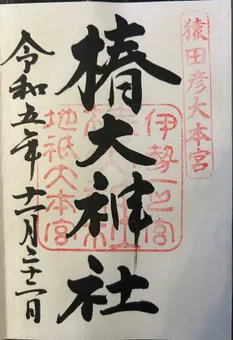 猿田彦大本宮
椿大神社
伊勢一之宮
地祇大本宮
令和五年十一月二十二日